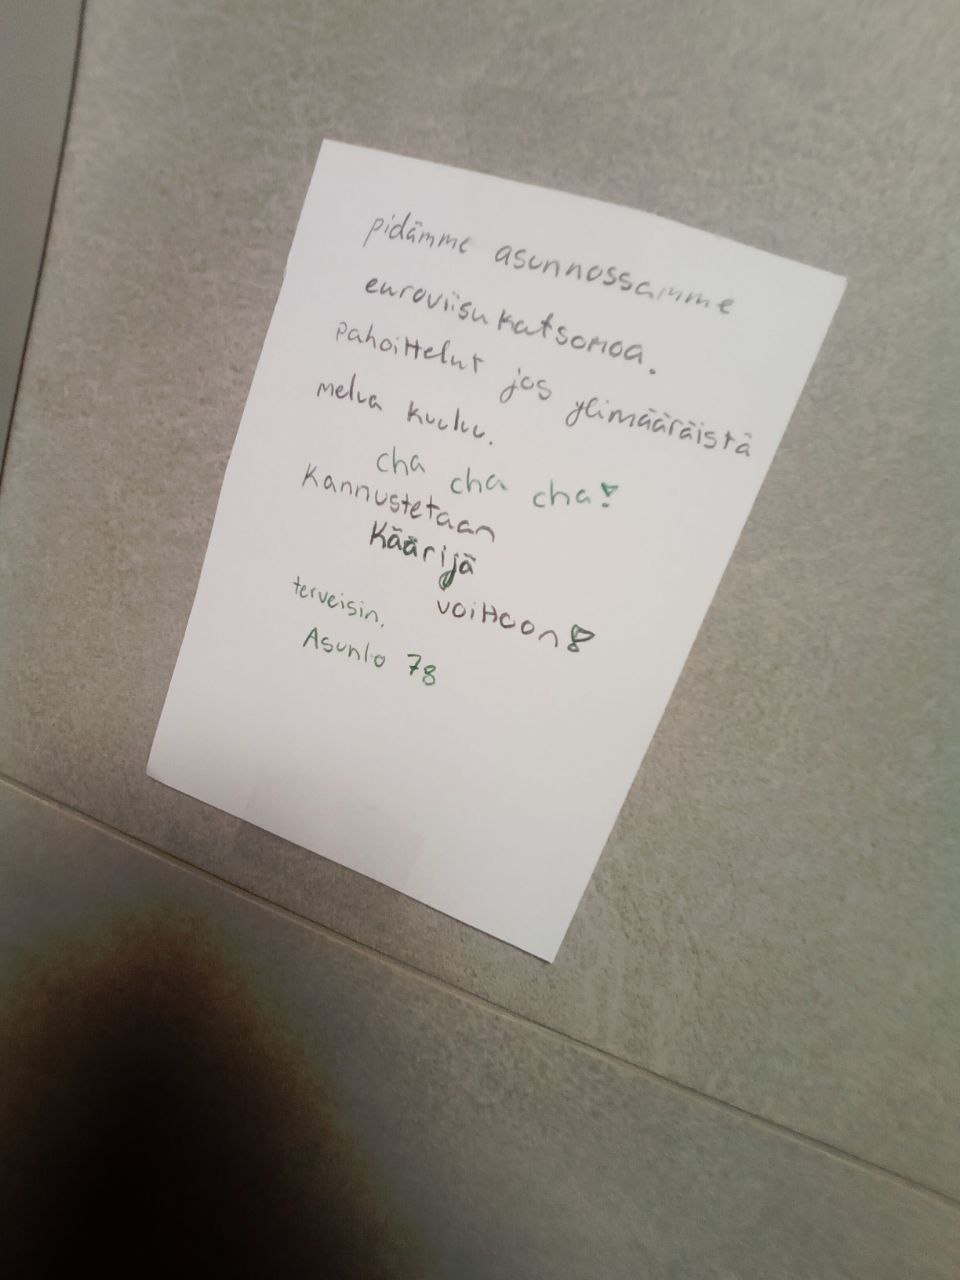 pidämme asunnossamme
euroviisukatsomoa.
pahoittelut jos ylimääräistä
melua kuuluu.
cha cha cha!
Kannustetaan
Käärijä
voittoon!
terveisin.
Asunto 78